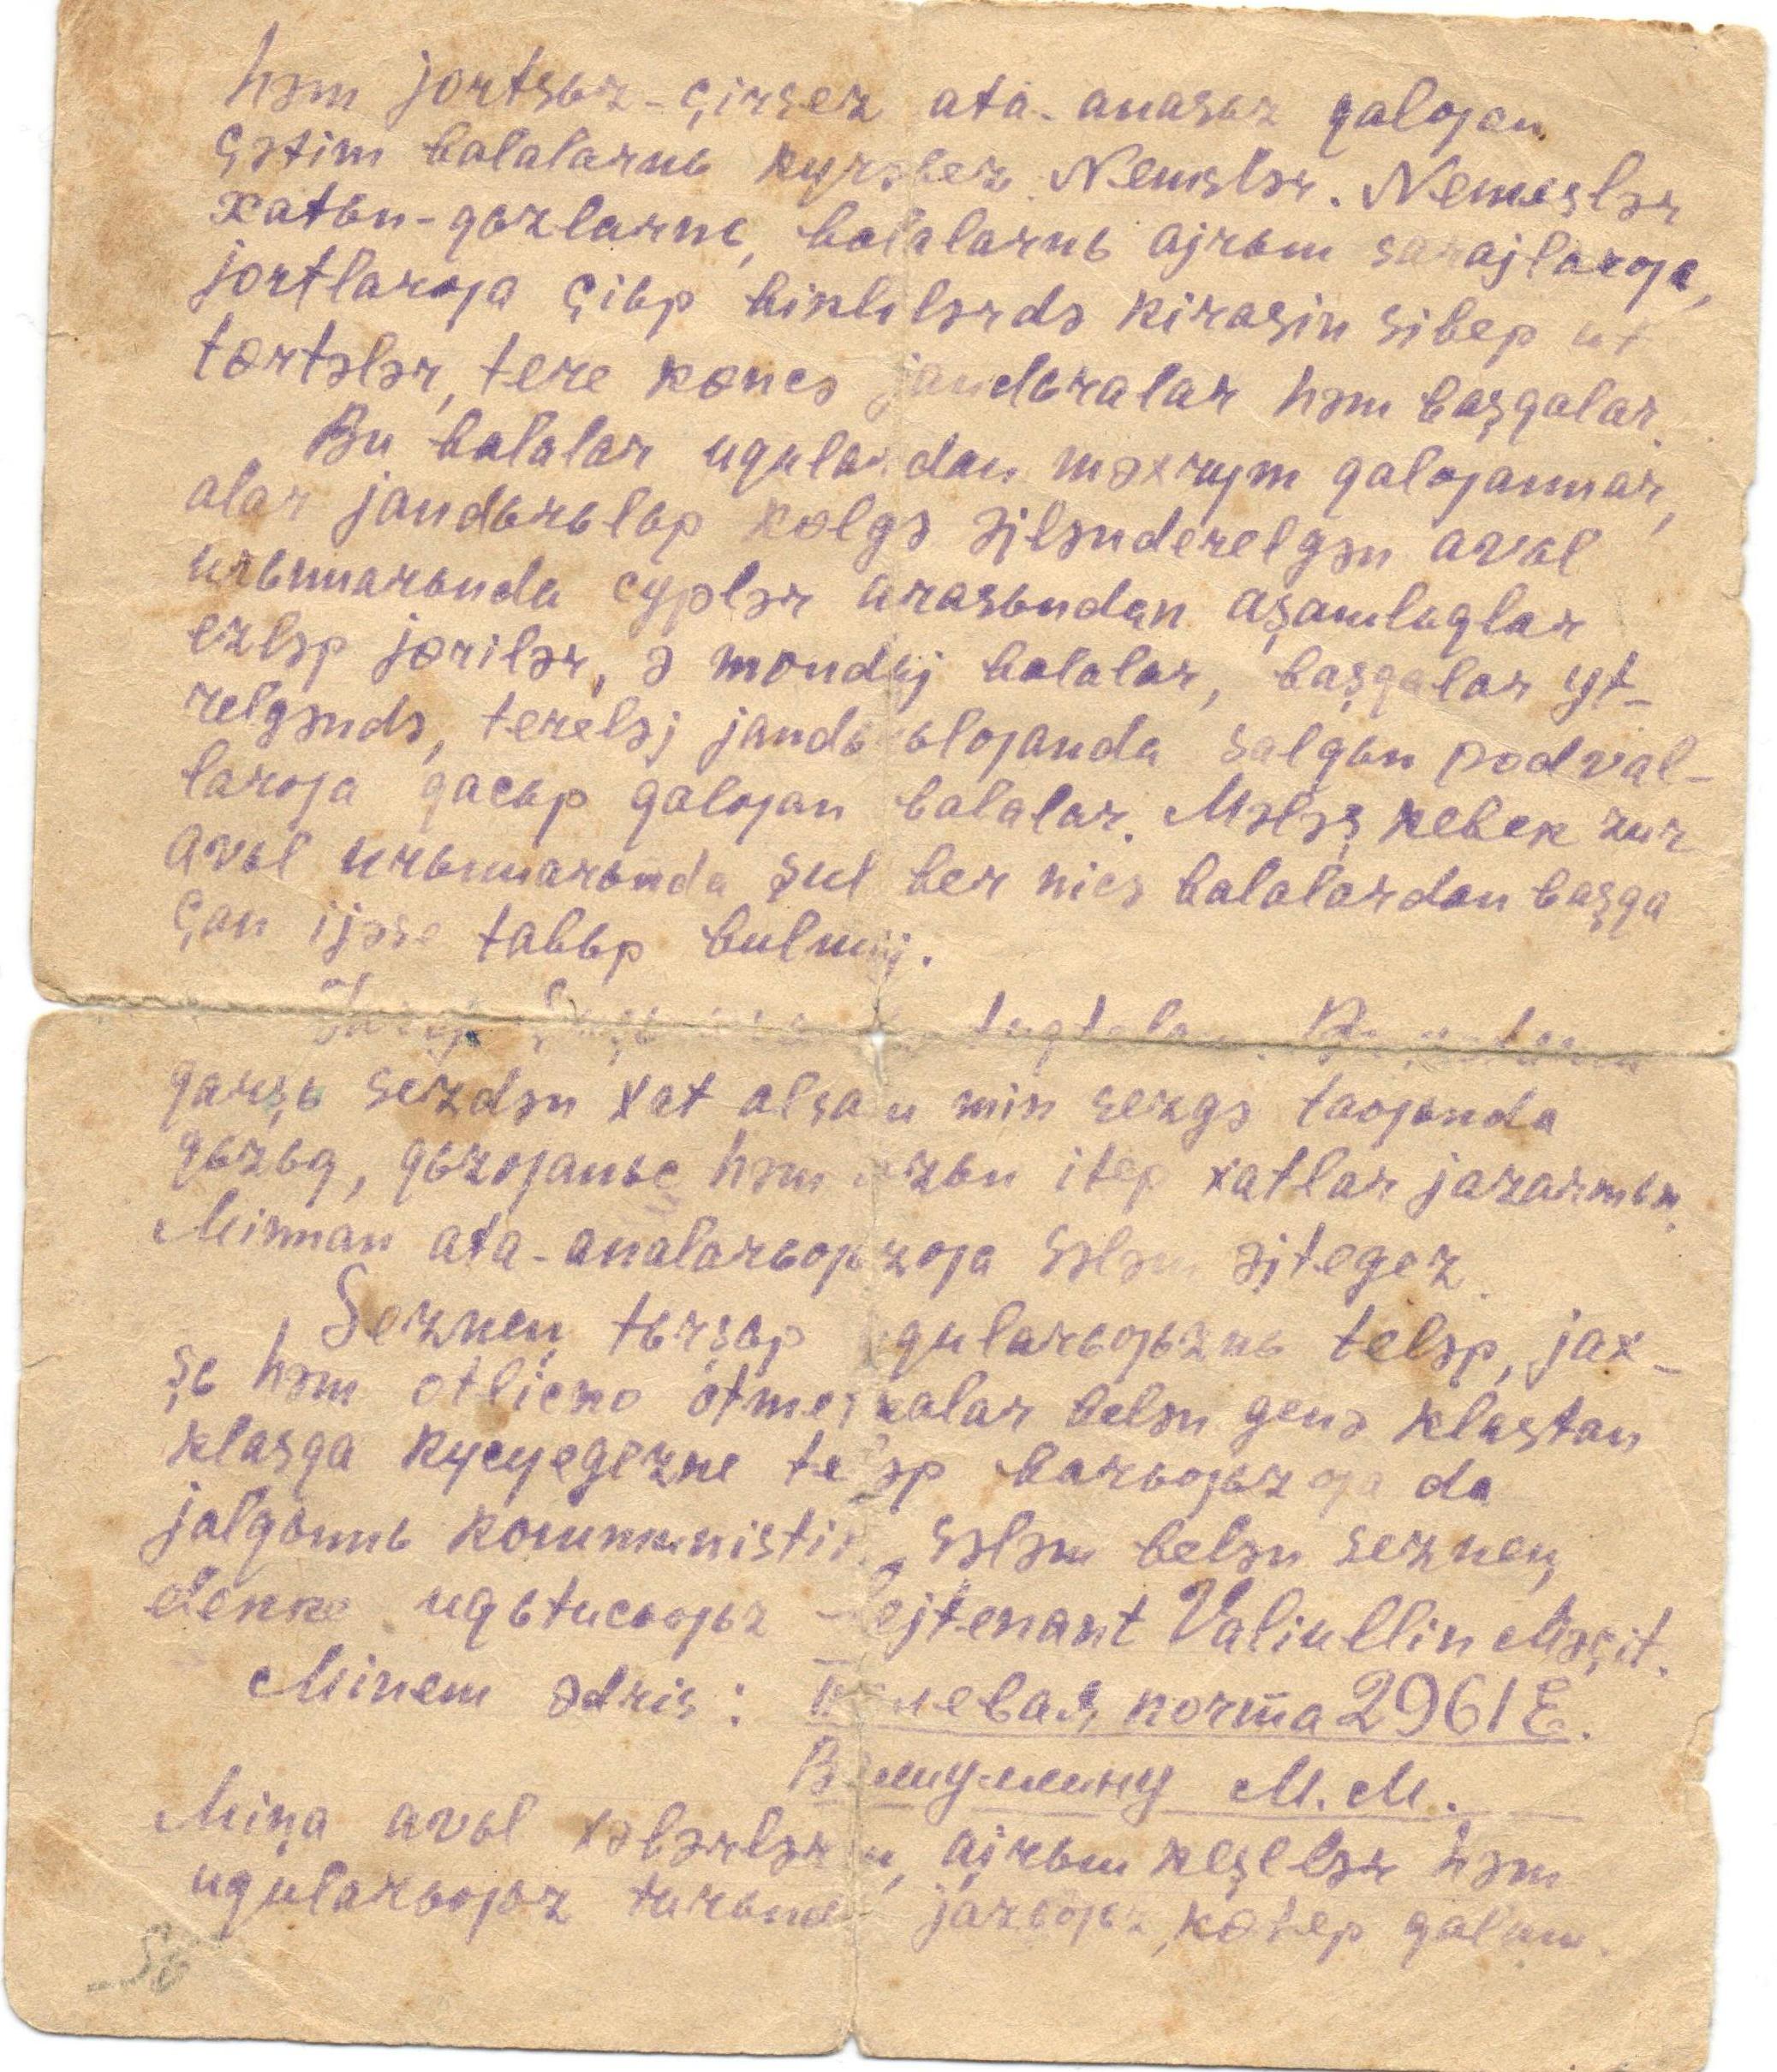 həm jortsьz-çirsez ata-anasьz qalƣan
çətim balalarnь kyrəbez. Nemeslər. Nemeslər
xatьn-qьzlarnь, balalarnь ajrьm sarajlarƣa,
jortlarƣa çiьp biklilərdə kirasin sibep ut
tɵrtələr, tere kɵncə jandьralar həm başqalar.
Bu balalar uqulardan məxrym qalƣannar,
alar jandьrьlьp kɵlgə əjlənderelgən avьl
urьnnarьnda cyplər arasьndan aşamlьqlar
ezləp jɵrilər, ə mondьj balalar, başqalar yt-
relgəndə, tereləj jandьrьlƣanda salqьn podval-
larƣa qacьp qalƣan balalar. Mələş kebek zur
avьl urьnnarьnda şul ber nicə balalardan başqa
çan ijəse tabьp bulmьj.
qarşь sezdən xat alsam min sezgə taƣьnda
qьzьq, qьzƣanьc həm uzьn itep xatlar jazarmьn.
Minnan ata-analarьƣьzƣa səlam əjtegez.
Seznen tьrьşьp uqularьƣьznь teləp, jax-
şь həm otlicno otmetkalar belən genə klastan
klasqa kycyegezne teləp barьƣьzƣa da
jalqьnnь kommunistik səlam belən seznen,
elekke uqьtucьƣьz lejtenant Valiullin Məçit.
Minem adris: Полевая почта 2961 Е.
Валиуллину М. М.
Mina avьl xəbərlərn, ajrьm keşelər həm
uqularьƣьz turьnda jazьƣьz, kɵtep qalam.